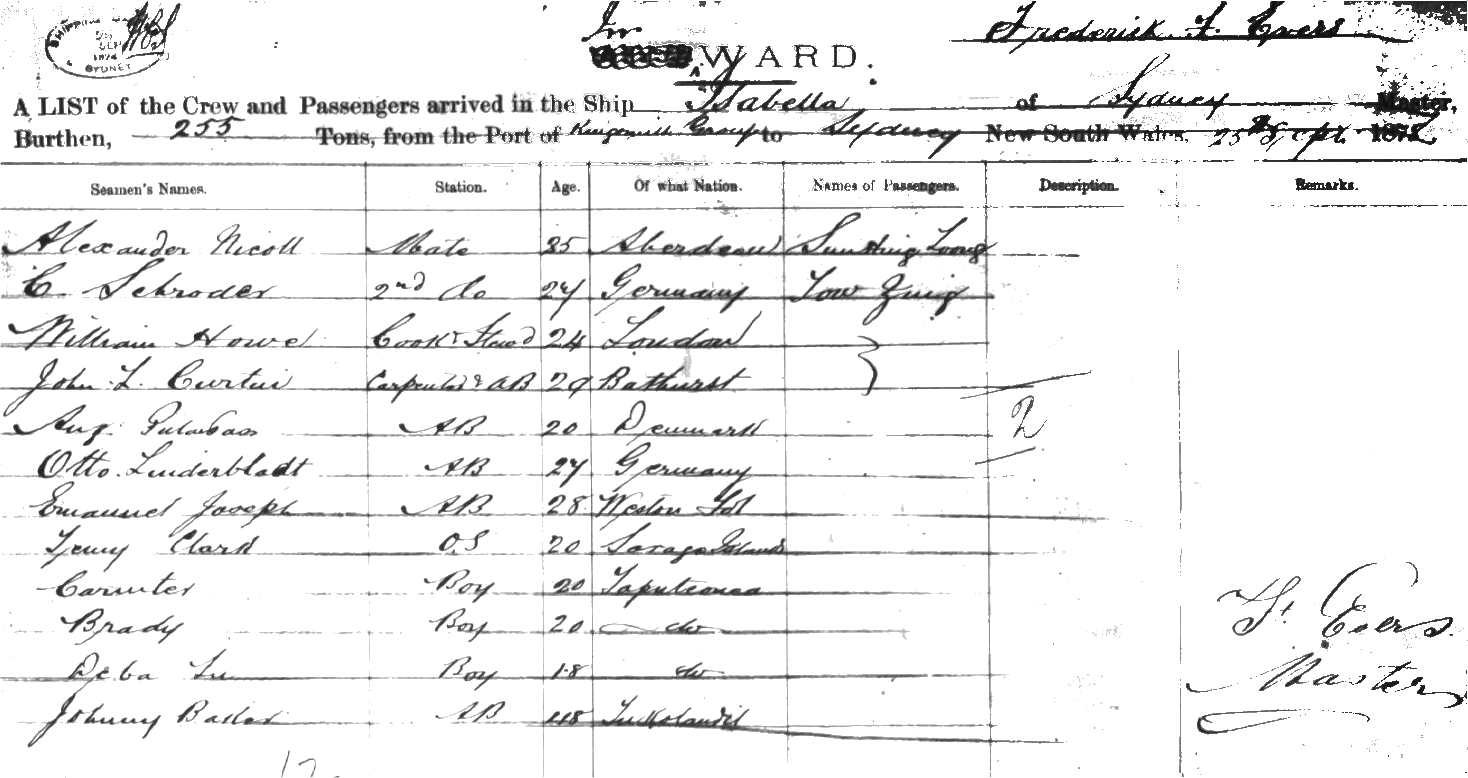 SHIPPING
SEP
1874
SYDNEY
In
WARD.
Frederick F. Evers
A LIST of the Crew and Passengers arrived in the Ship Isabella of Sydney Master,
Burthen, 255 Tons, from the Port of Kingsmill Group to Sydney New South Wales, 25th Sept 187
Seamen's Names. Station. Age. Of what Nation. Names of Passengers. Description. Remarks.
Alexander Nicoll Mate 35 Aberdeen Sun Hing Loong
C. Schroder 2nd do 27 Germany Tow Zing
William Howe Cook & Stewd 24 London
John L. Curtin Carpenter & AB 29 Bathurst
Aug. AB 20 Denmark
2
Otto Linderbladt AB 27 Germany
Emanuel Joseph AB 28 Weston Isl
Clark O.S 20 Savage Islands
Boy 20 Taputeouea
Brady Boy 20 do
Boy 18 do
Johnny AB 18
F. Evers.
Master
12